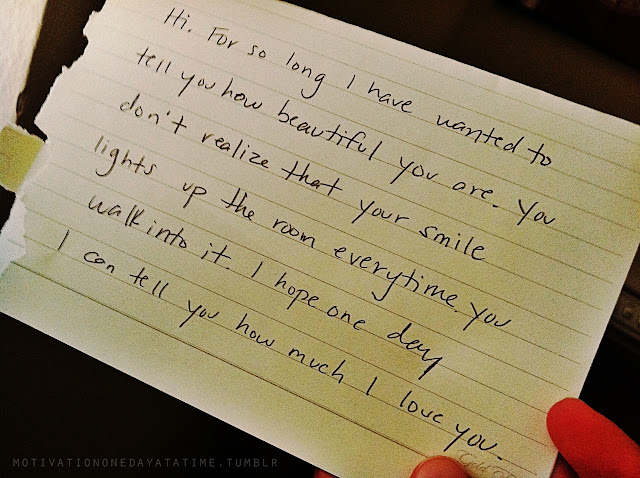 Hi. For so long I have wanted to
tell you how beautiful you are. You
don't realize that your smile
lights up the room everytime you
walk into it. I hope one day
I can tell you how much I love you.
MOTIVATIONONEDAYATATIME.TUMBLR